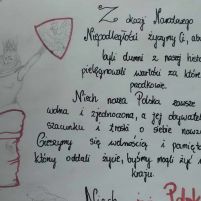 Z okazji Narodowego
Niepodległości życzymy Ci, aby
byli dumni z naszej histo
pielęgnowali wartości za które
przodkowie.
Niech nasza Polska zawsze
wolna i zjednoczona, a jej obywatel
szacunku i troski o siebie nawza
Cieszymy się wolnością i pamiętc
którzy oddali życie, byśmy mogli żyć w
kraju.
Niech Polsk